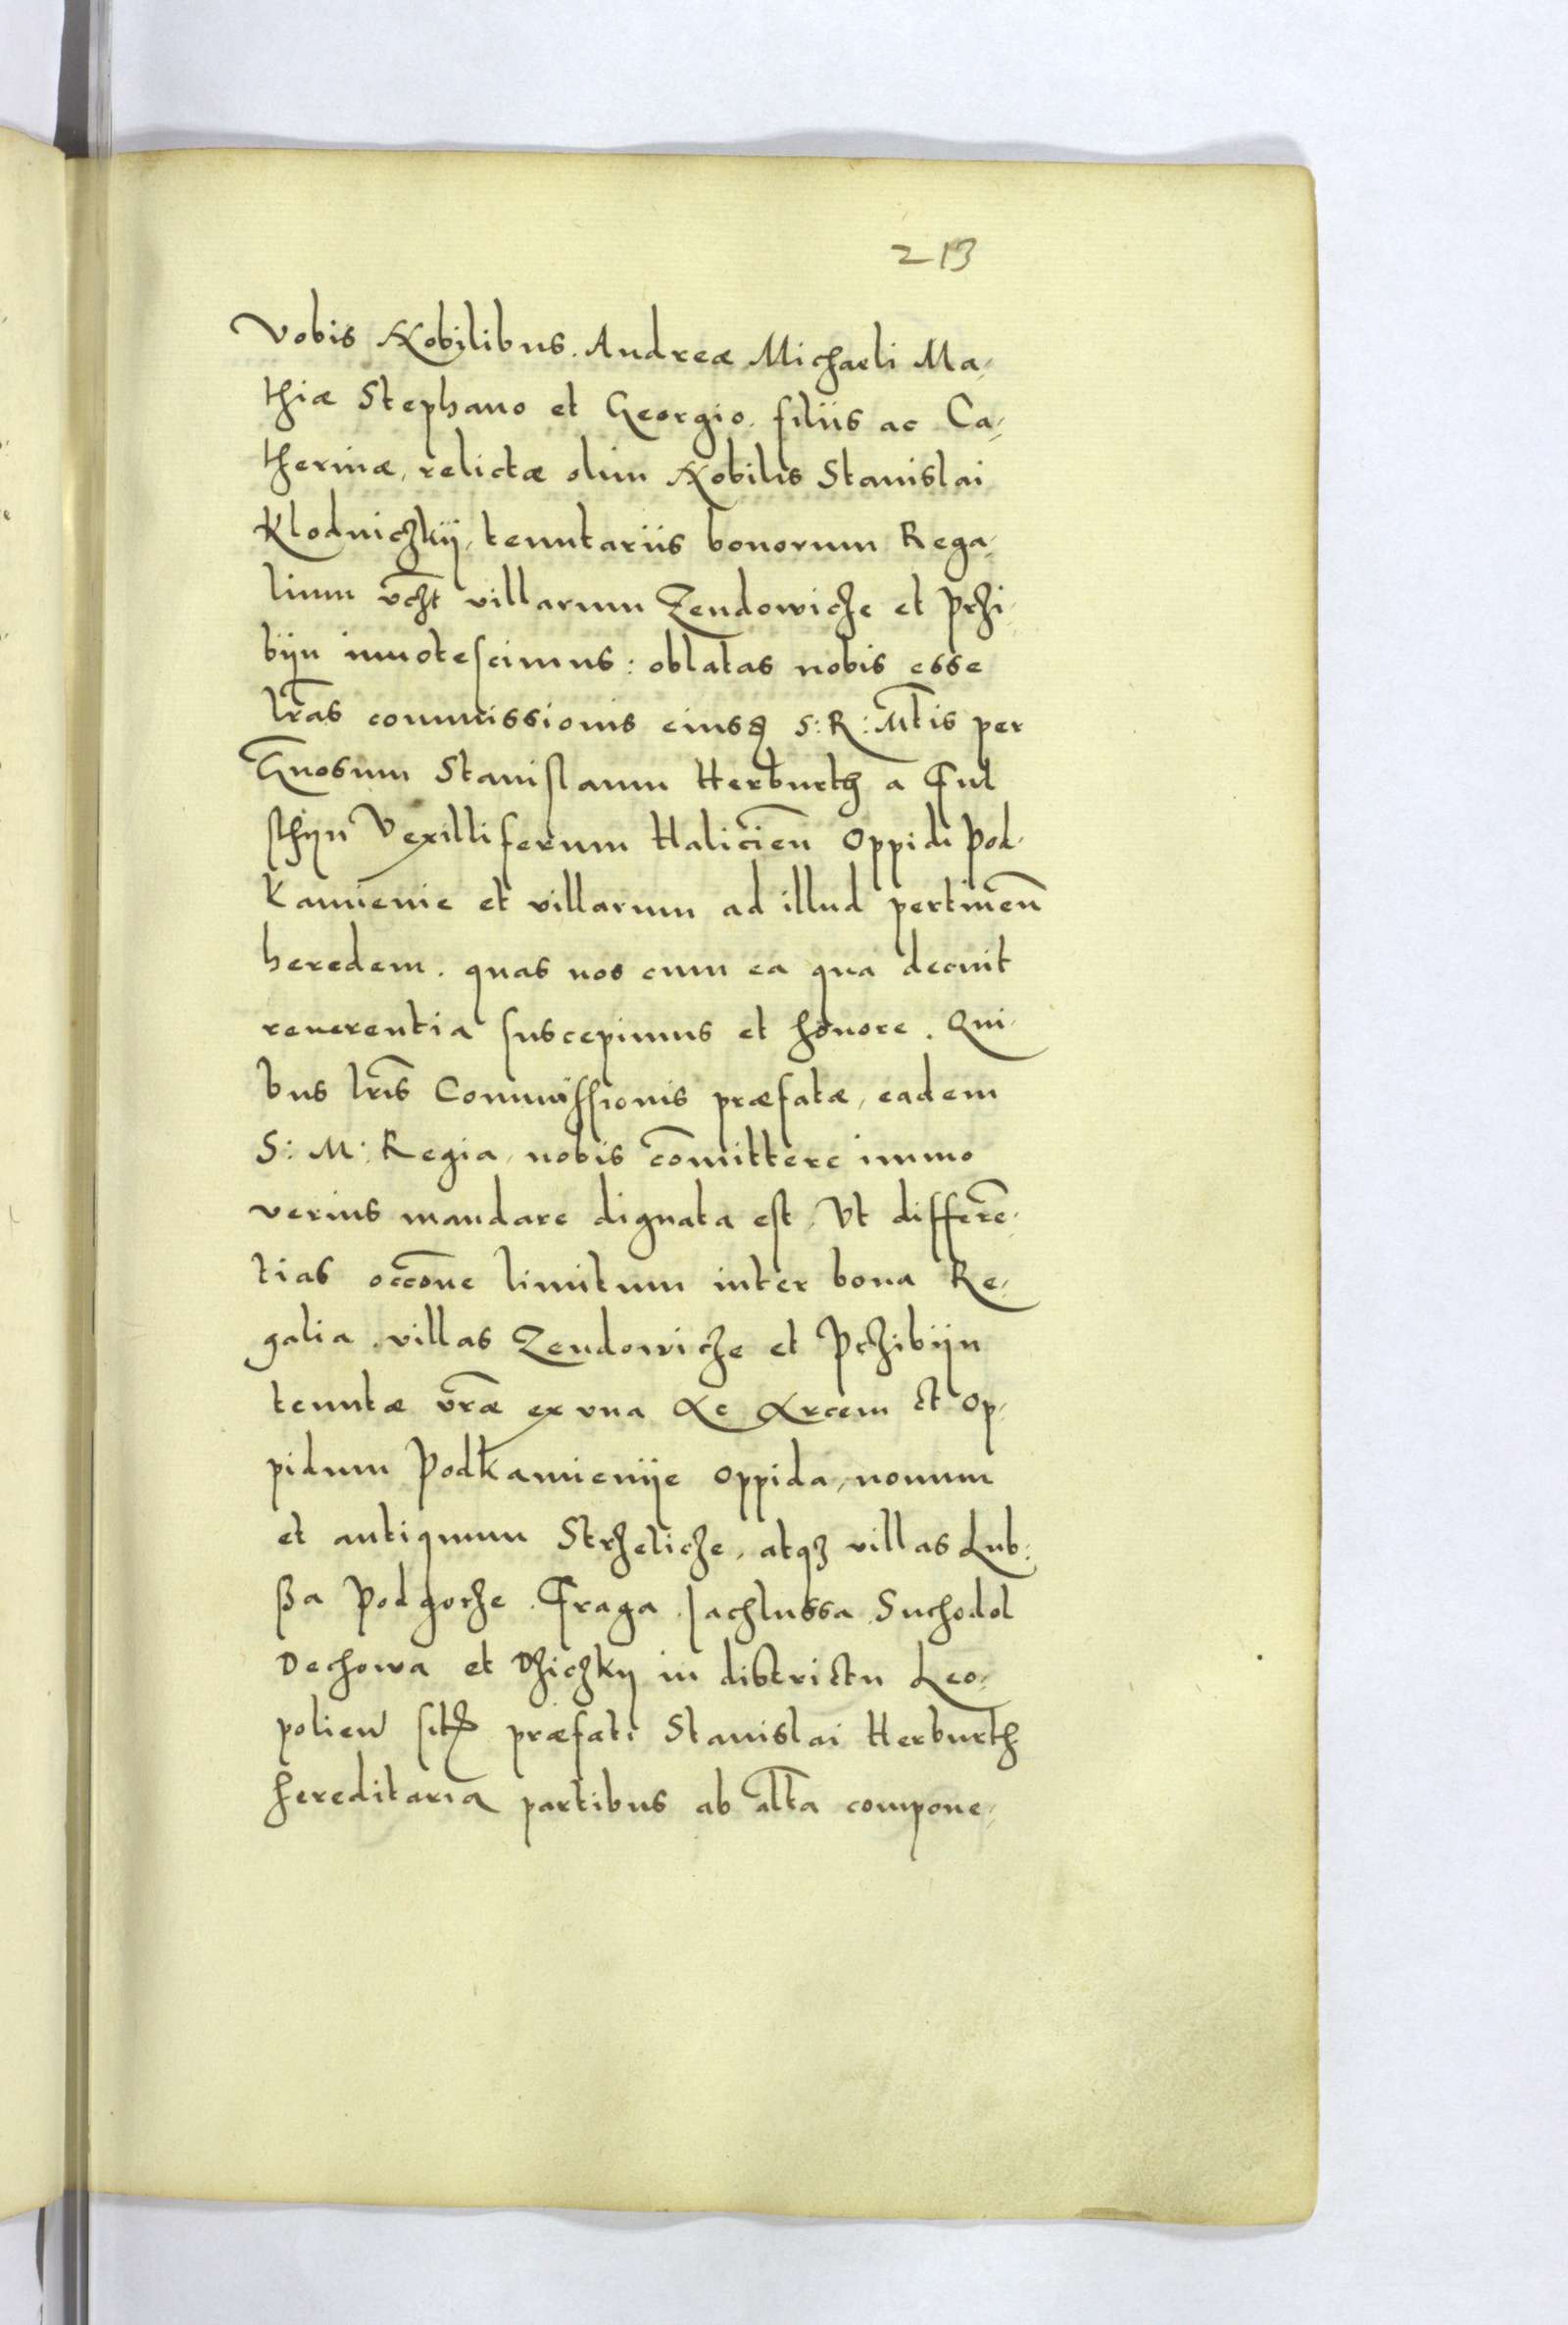 213
Vobis Nobilibus. Andreæ Michaeli Ma-
thiæ Stephano et Georgio. filiis ac Ca-
therinæ, relictæ olim Nobilis Stanislai
Klodniczkij, tenutariis bonorum Rega-
lium vcht villarum Zendowicze et Przi-
bijn innotescimus: oblatas nobis esse
lr̃as commissionis eiusq3 S: R: Mt̃is per
Gñosum Stanislaum Herburth a Ful
sthijn Vexilliferum Halicień Oppidi Pod-
kamienie et villarum ad illud pertineñ
heredem. quas nos cum ea qua decuit
reuerentia suscepimus et honore. Qui-
bus lr̃is Commissionis præfatæ, eadem
S: M: Regia, nobis com̃ittere immo
verius mandare dignata est, Vt differẽ-
tias occõne limitum inter bona Re-
galia. villas Zendowicze et Przibijn
tenutæ vr̃æ ex vna Ac Arcem et Op-
pidum Podkamienije Oppida, nouum
et antiquum Strzelicze, atq3 villas Lub-
ßa Podgorze. Fraga. Jachlussa. Suchodol
Dechowa et Dziczkij in districtu Leo-
polieñ præfati Stanislai Herburth
hereditaria partibus ab alt̃a compone-